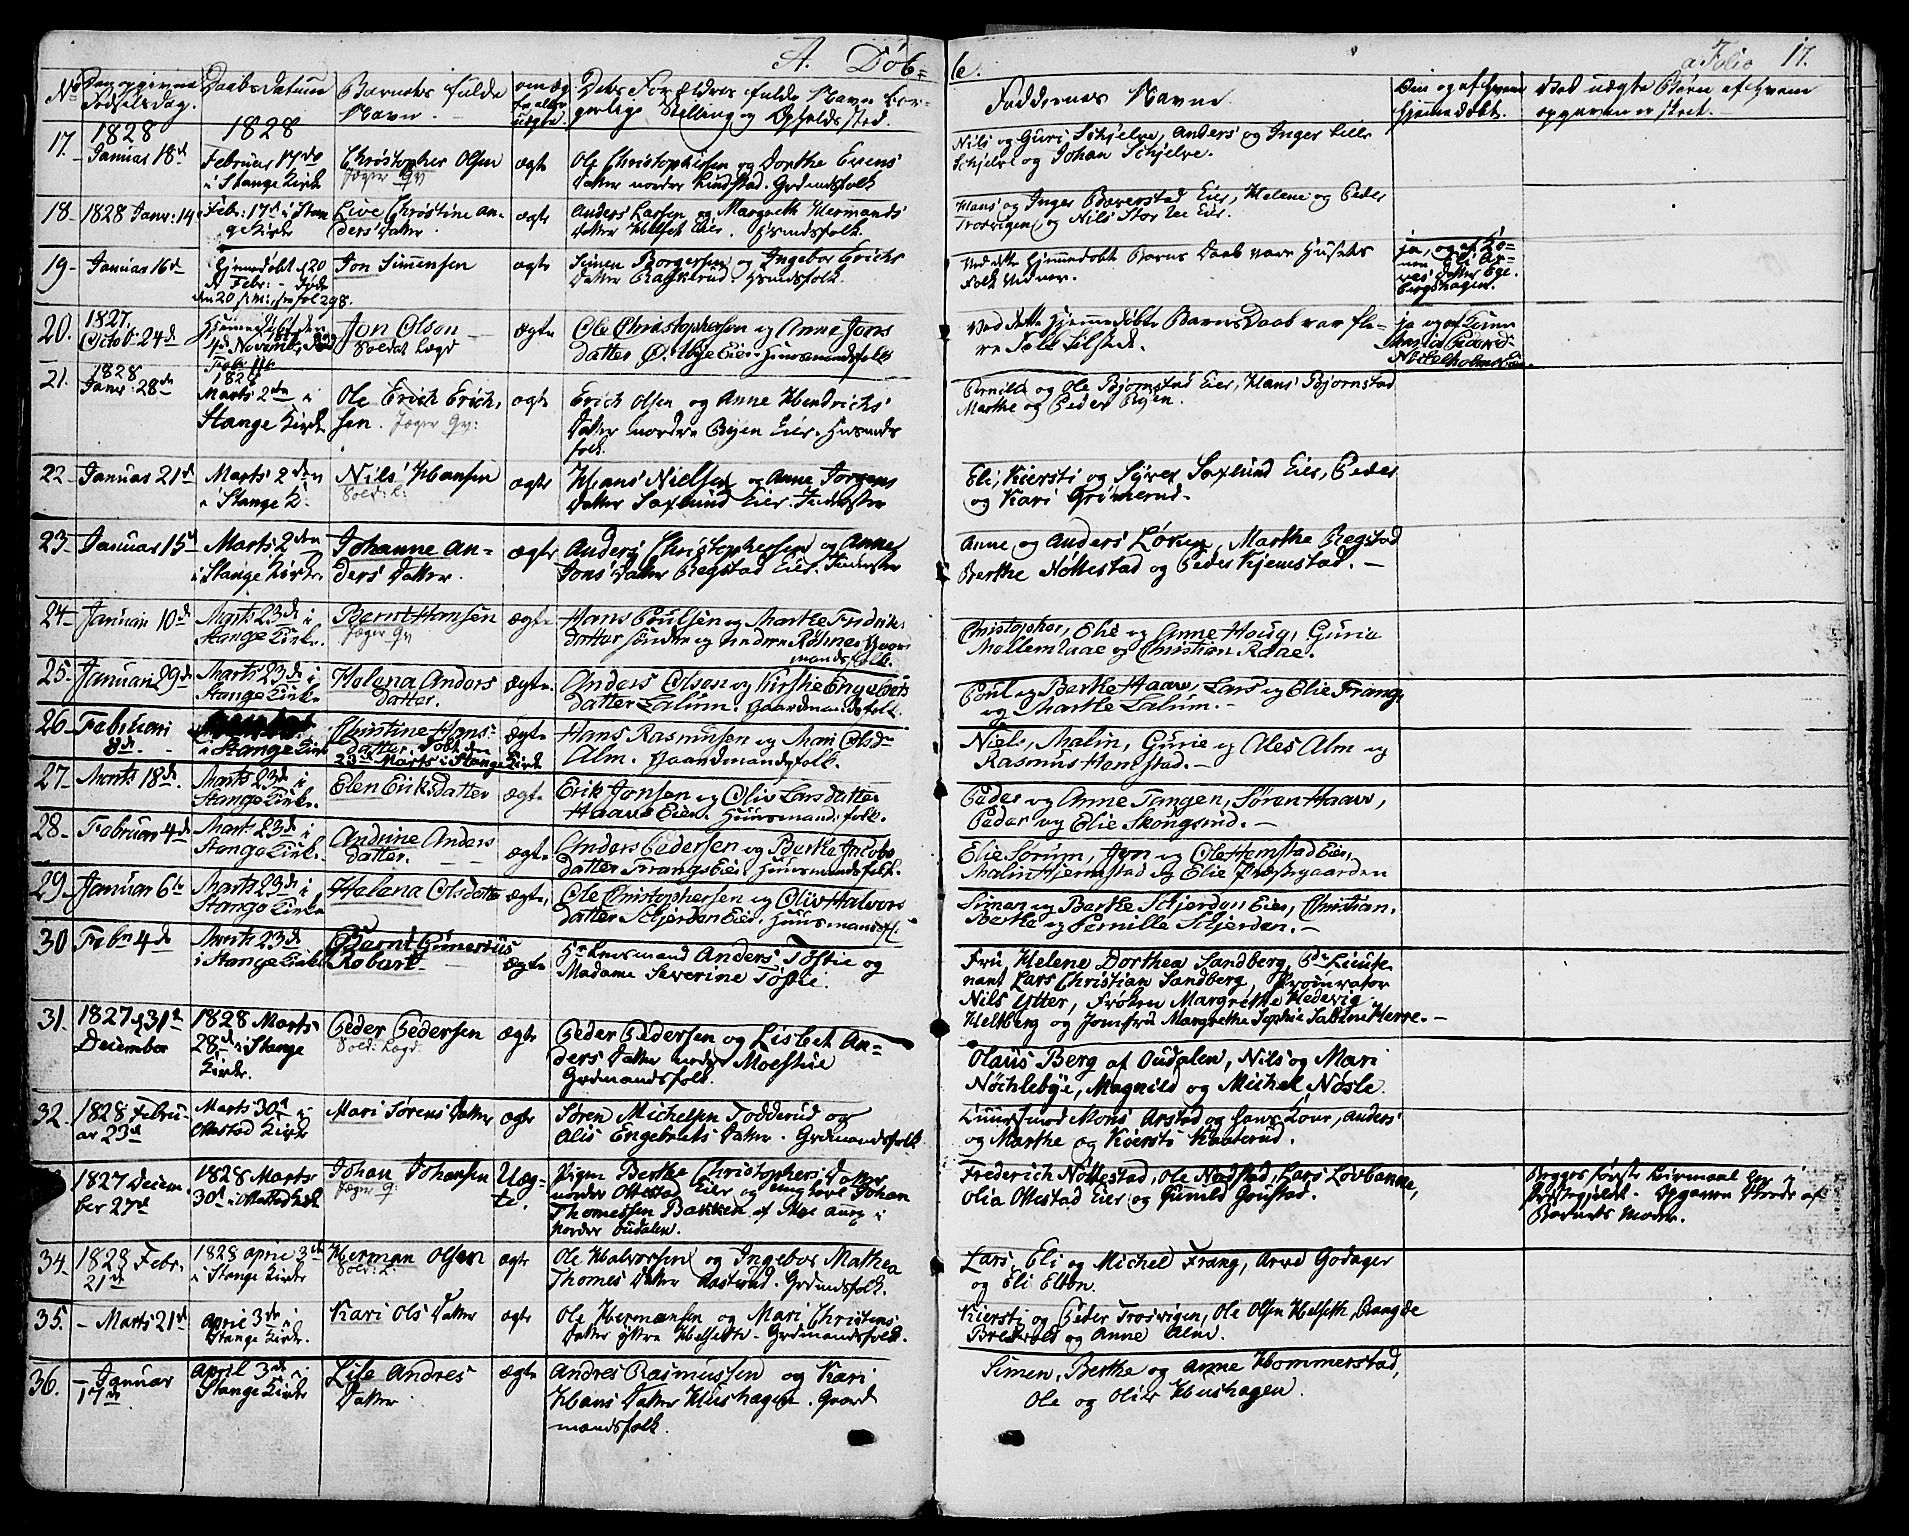 A. Døb=
te.
a Folio 17.
No
Den opgivne
Fødselsdag.
Daabs Datum
Barnets fulde
Navn.
om æg-
te eller
uægte.
Dets Forældres fulde Navne bor-
gerlige Stilling og Opholdssted.
Faddernes Navne
Om og af hvem
hjemmedøbt.
Ved uægte Børn af hvem
opgaven er skeet.
17.
1828
Januar 18d
1828
Februar 17de
i Stange Kirke
Christopher Olsen
Jæger Gv
ægte
Ole Christophersen og Dorthe Evens
Datter nordre Lindstad. Grdmandsfolk
Nils og Guri Schjelve, Anders og Inger Lille
Schjelve og Johan Schjelve.
18
1828 Janr: 14
Febr: 17d i Stan
ge Kirke
Live Christine An
ders Datter
ægte
Anders Larsen og Margreth Hermands
Datter Helset Eier. Hsmdsfolk.
Hans og Inger Bæverstad Eier, Helene og Peder
Trosvigen og Nils Stor Lee Eier.
19
Januar 16d
Hjemmedøbt d 20
Febr:
Jon Simensen
ægte
Simen Borgersen og Ingebor Erichs
Datter Bakkerud. Hsmdsfolk.
Ved dette hjemmedøbt Barns Daab vare Husets
Folk Vidner.
20.
1827
Octob: 24d
4d Novemb:
Jon Olson
Soldat Lægd
ægte
Ole Christophersen og Anne Jons
datter Ottbye Eier. Huusmandsfolk
Ved dette hjemmedøbte Barns Daab var fle-
re Folk tilstede.
21.
1828
Janr: 28de
1828
Marts 2den i
Stange Kirke
Ole Erich Erich,
sen. Jæger Gv:
ægte
Erich Olsen og Anne Hendrichs
Datter nordre Ryen Eier. Husmds
folk.
Pernille og Ole Bjørnstad Eier, Hans Bjørnstad
Marthe og Peder Ryen.
22
Januar 21d
Marts 2den
i Stange K.
Nils Hansen
Sold: L:
ægte
Hans Nielsen og Anne Jorgens
Datter Saxlund Eier. Inderster
Eli, Kiersti og Syver Saxlund Eier, Peder
og Kari Grimerud.
23
Januar 15d
Marts 2den
i Stange Kirke
Johanne An-
ders Datter.
ægte
Anders Christophersen og Anne
Jons Datter Regstad Eier. Inderster
Anne og Anders Løken, Marthe Regstad
Berthe Nøttestad og Peder Kjemstad.
24
Januari 10d
Marts 23d i
Stange Kirke.
Bernt Hansen
Jæger Gv
ægte
Hans Poulsen og Marthe Fredriks
datter Røhne Gaard
mandsfolk.
Christopher, Elie og Anne Houg, Guria
Mellem Raae og Christian Raae.
25
Januari 29d
Marts 23d i
Stange Kirke
Helena Anders
datter.
ægte.
Anders Olson og Kirstie Engebrets
datter Lalum. Gaardmandsfolk.
Poul og Berthe Haave, Lars og Elie Frang,
og Marthe Lalum.
26
Februari
8de
i Stange Kirke
Christine Hans-
datter. Døbt den
23d Marts i Stange Kirke
ægte
Hans Rasmusen og Mari Olsdr
Alm. Gaardmandsfolk.
Niels, Malin, Gurie og Ales Alm og
Rasmus Hemstad.
27
Marts 18d
Marts 23d i
Stange Kirke.
Elen Eriksdatter
ægte
Erik Jonsen og Oliv Larsdatter
Haave Eier. Huusmandsfolk.
Peder og Anne Tangen, Søren Haave,
Peder og Elie Skougsrud.
28
Februar 4d
Marts 23d i
Stange Kirke.
Andrine Anders
datter.
ægte
Anders Pedersen og Berthe Jacobs
datter Frangs Eier. Huusmandsfolk.
Elie Sørum, Jon og Ole Hemstad Eier,
Malin Hjemstad og Elie Præstegaarden
29
Januar 6te
Marts 23d i
Stange Kirke
Helena Olsdatter
ægte,
Ole Christophersen og Oliv Halvors
datter Schjerden Eier. Huusmandsf.
Siman og Berthe Schjerden Eier, Christian,
Berthe og Pernille Schjerden.
30
Febr 4d
Marts 23d
i Stange Kirke
Bernt Gunerius
Robart
ægte
Hr Lensmand Anders Tøstie og
Madame Severine Tøstie.
Fru Helene Dorthea Sandberg, Pr: Lieute-
nant Lars Christian Sandberg, Procurator
Nils Ytter, Frøken Margrethe Hedevig
Heltberg og Jomfru Margrethe Sophie Sabine Herre.
31.
1827 d 31te
December
1828 Marts
28d i Stange
Kirke.
Peder Pedersen
Sold: Lægd.
ægte
Peder Pedersen og Lisbet An-
ders Datter nedre Moestue
Grdmandsfolk.
Olaus Berg af Oudalen, Nils og Mari
Nøchlebye, Magnild og Michel Nøsle.
32.
1828 Febru-
ar 23d
Marts 30d i
Ottestad Kirke
Mari Sørens Datter
ægte
Søren Michelsen Todderud og
Alis Engebrets Datter. Grdmandsfolk
Mons Arstad og Hans Kour, Anders
og Marthe og Kiersti Kaaterud.
1827 Decem-
ber 27d
1828 Marts
30d i Ottestad Kirke
Johan Johansen
Jæger G:
Uæg-
te.
Pigen Berthe Christophers Datter
nordre Ottestad Eier og ungkarl Johan
Thomessen Bakken af Moe Anex i
Nordre Oudalen.
Frederich Nøttestad, Ole Nedstad, Lars Lovbanne,
Olia Ottestad Eier og Gunild Goustad.
Begges første Leiermaal her i
Præstegjeldet. Opgaven skeede af
Barnets Moder.
34.
1828 Febr.
21d
1828 April 3d
i Stange Kirke
Herman Olsen
Sold: L:
ægte
Ole Halvorsen og Ingebor Mathea
Thomes Datter Aasterud. Grdmandsfolk.
Lars, Eli og Michel Frang, Arve Godager
og Eli Elton.
35.
Marts 21d
April 3de i
Stange Kirke.
Kari Ols Datter
ægte
Ole Hermansen og Mari Christens
Datter ystre Helseth. Grdmandsfolk.
Kiersti og Peder Trosvigen, Ole Olsen Helseth,
Bredvold og Anne Alm.
36.
Januar
17de
April 3de i
Stange Kirke
Lise Andres
Datter
ægte
Andres Rasmussen og Kari
Hans Datter Hushagen. Gaard
mandsfolk.
Simen, Berthe og Anne Hommerstad,
Ole og Olier Hushagen.